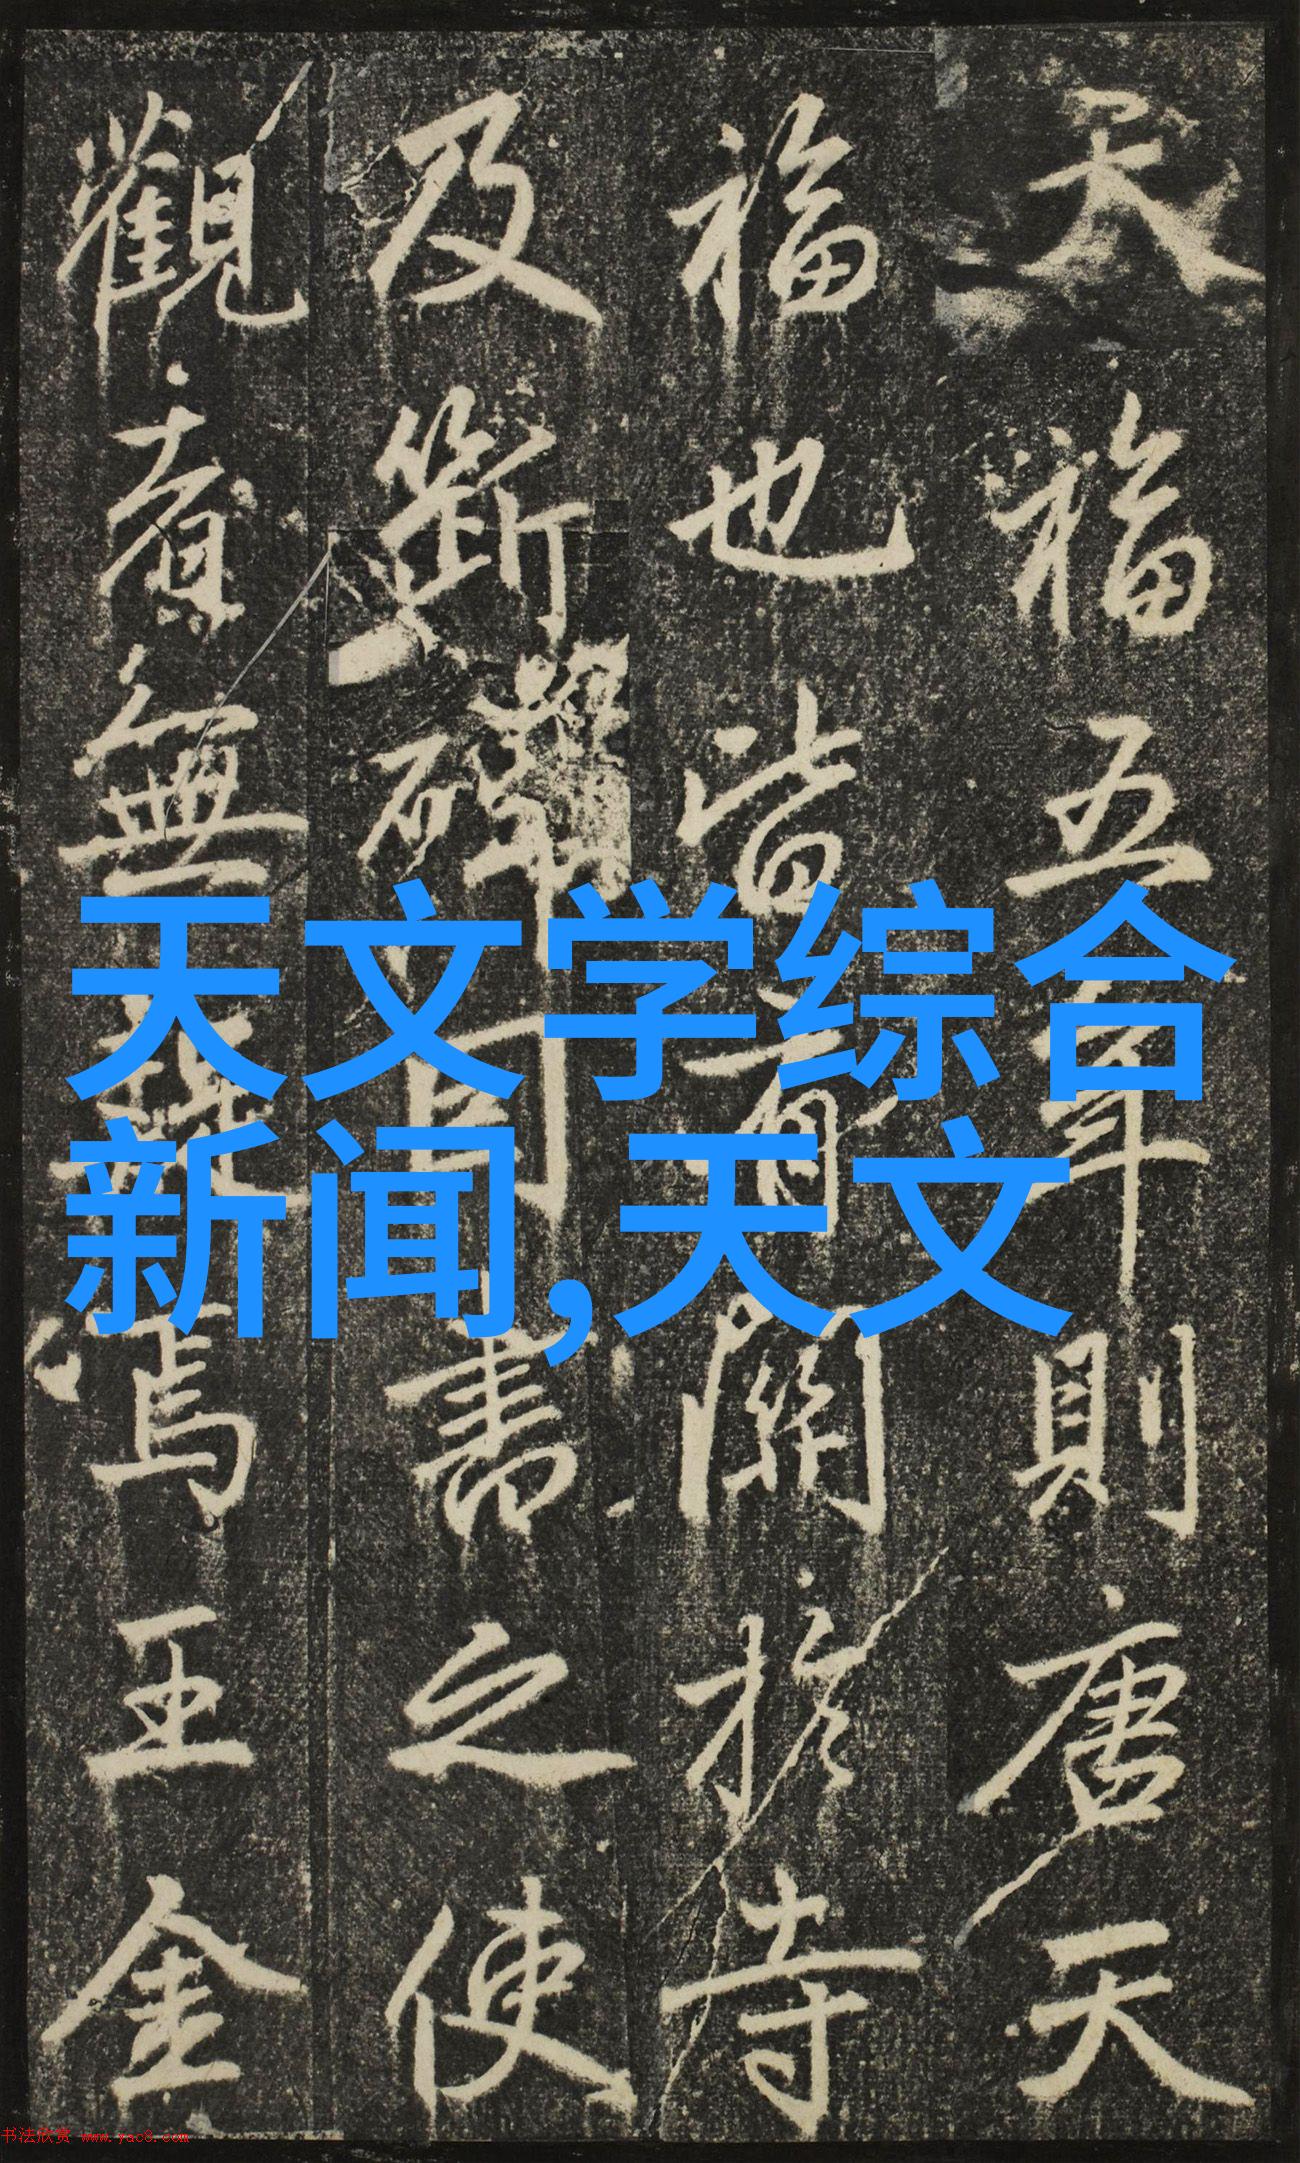 天福五年則唐天
福也皆有關於寺
及斷碑書之使
觀無焉王金
天文学综合
新闻,天文
书法欣赏 www.yac8.com